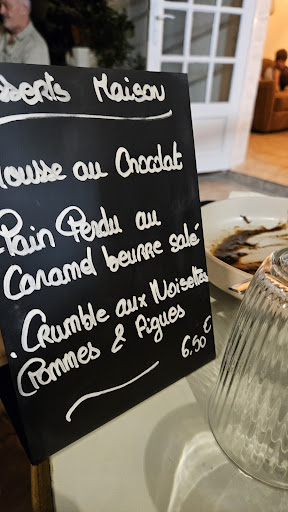 sserts Maison
ousse au Chocolat
Pain Perdu au
Caramel beurre salé
. Crumble aux Noisettes
Pommes & Figues
6.50€